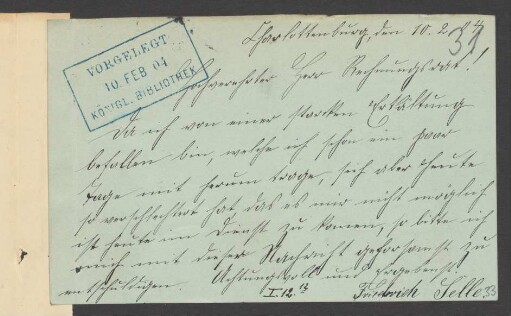 Charlottenburg, den 10. 2. 04
VORGELEGT
10. FEB. 04
KÖNIGL. BIBLIOTHEK
Hochverehrter Herr Rechnungsrat!
Da ich von einer starken Erkältung
befallen bin, welche ich schon ein paar
Tage mit herum trage, sich aber heute
so verschlechtert hat das es mir nicht möglich
ist heute im Dienst zu komen, so bitte ich
mich mit dieser Nachricht gehorsamst zu
entschuldigen. Achtungsvoll und Ergebenst.
I. 12. Friedrich Selle
33